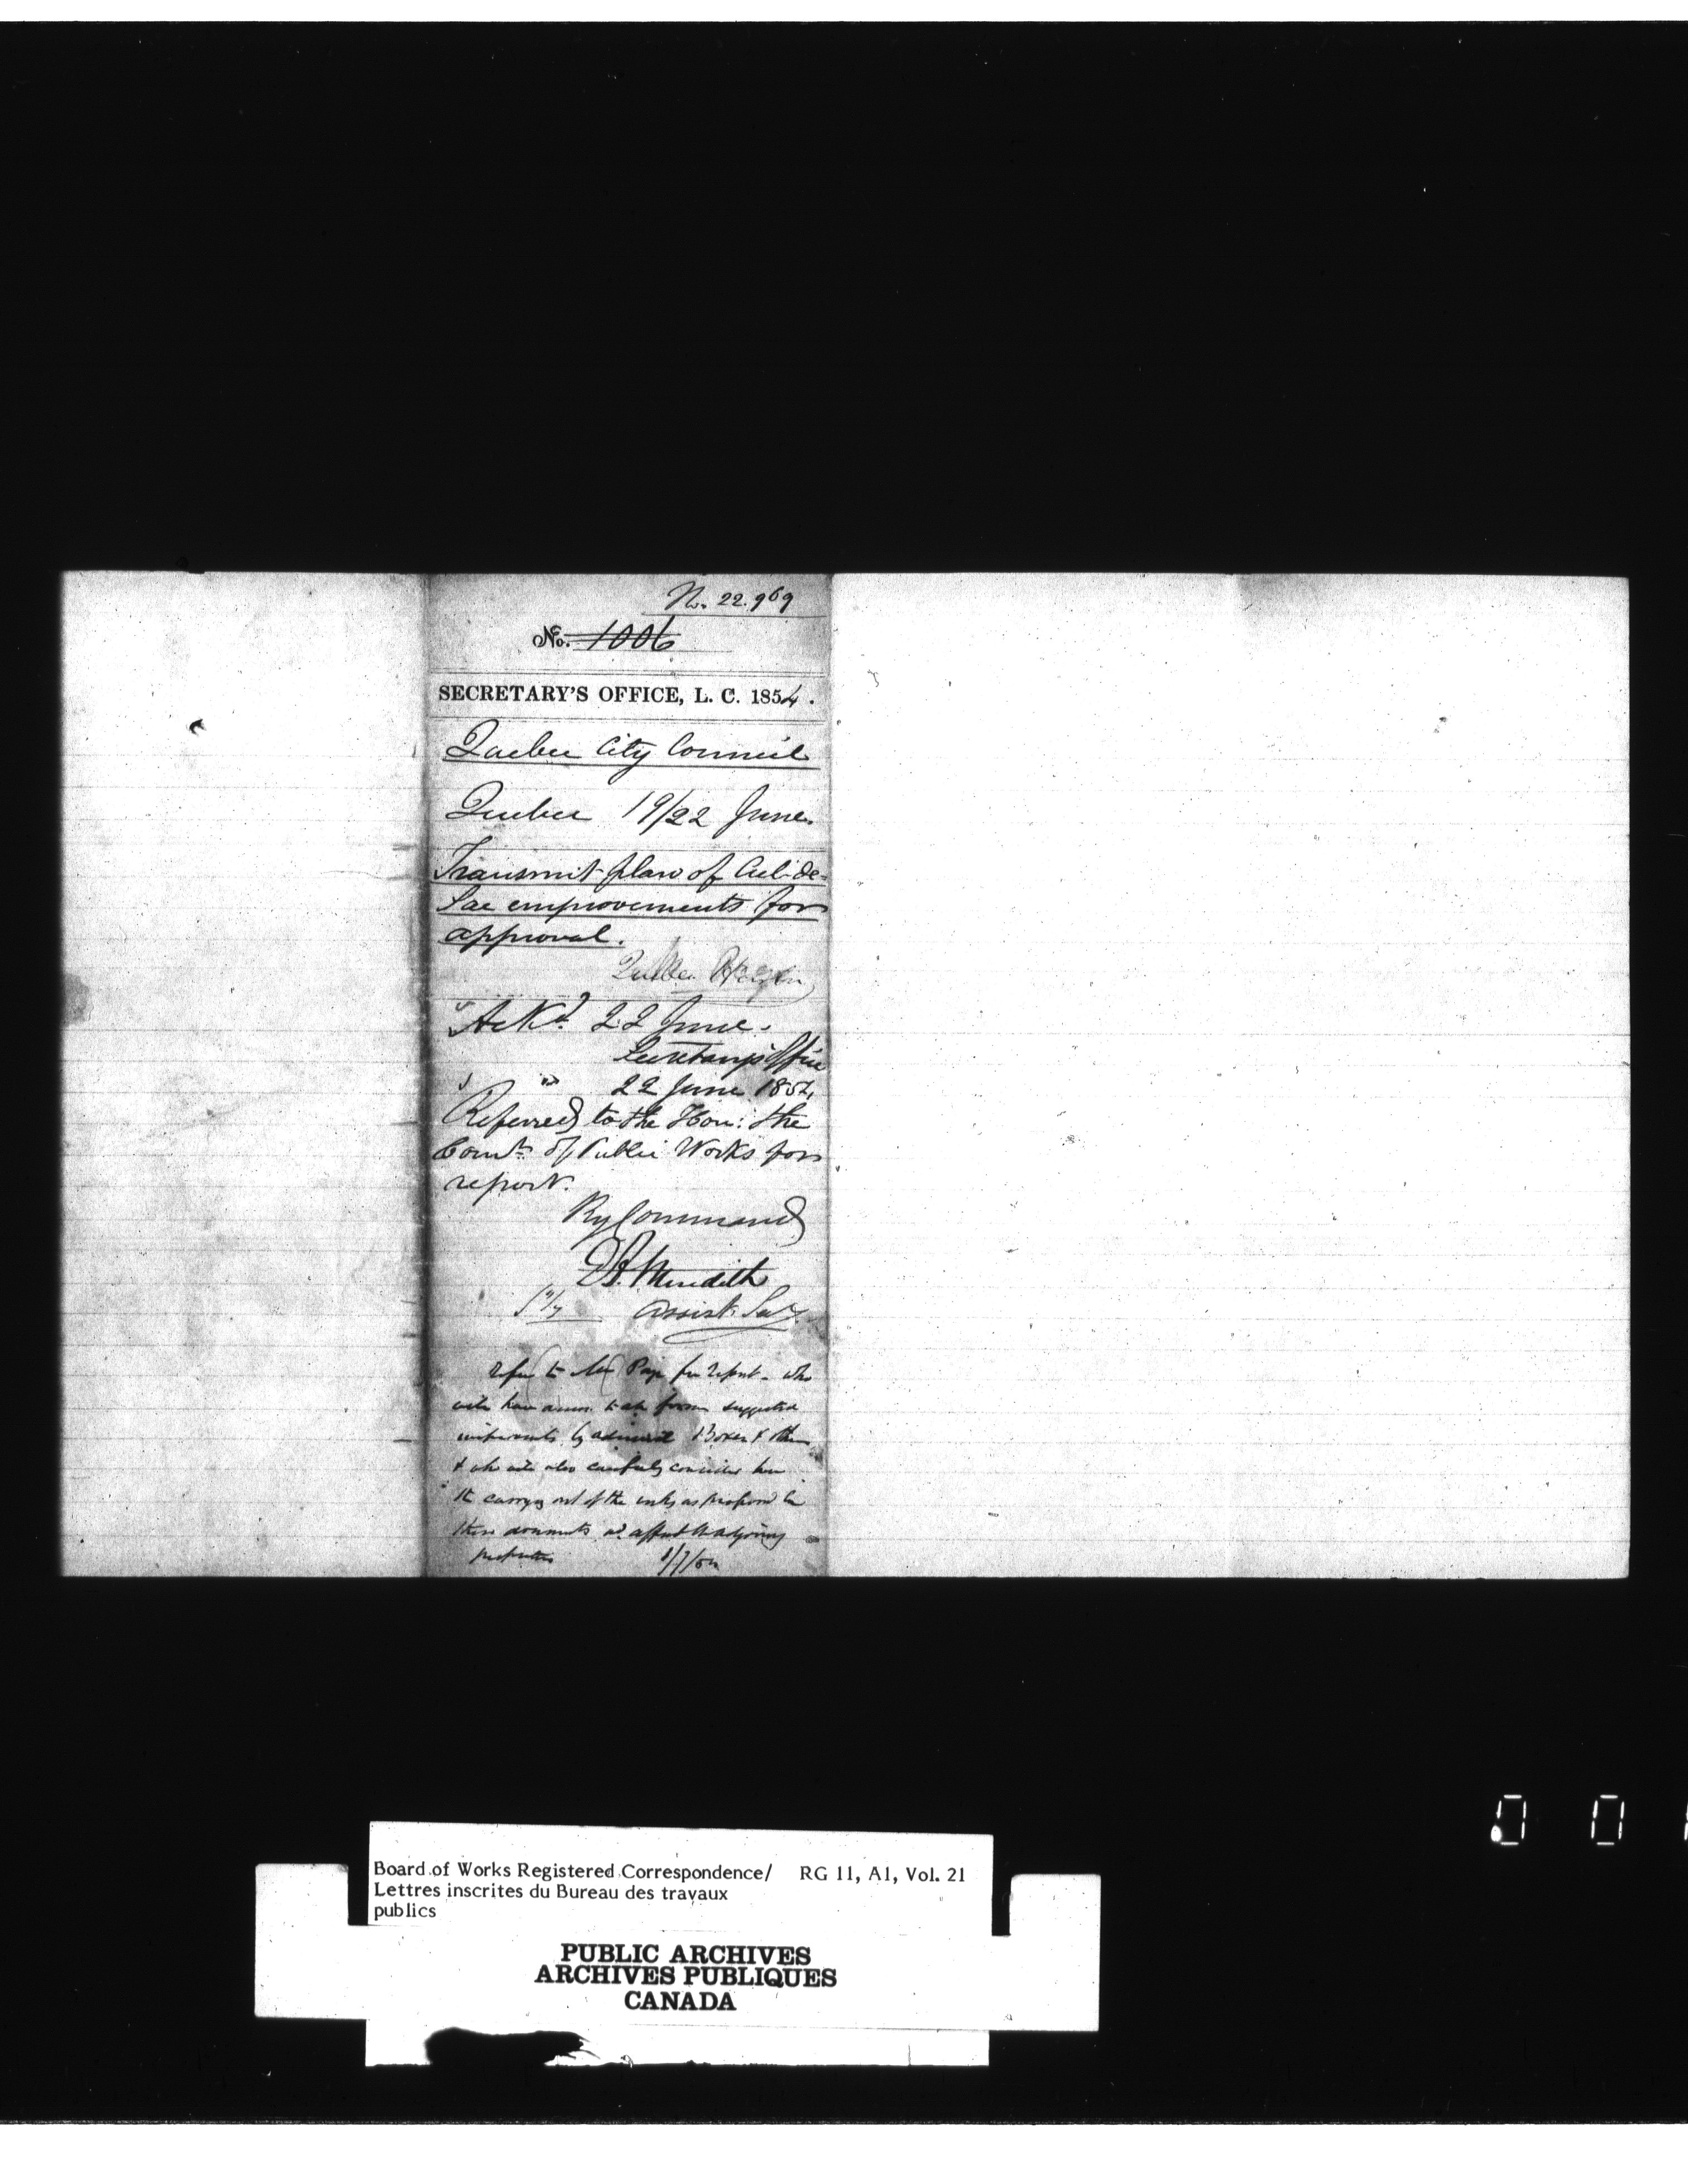 No. 22.969
No. 1006
SECRETARY'S OFFICE, L. C. 1854.
Quebec City Council
Quebec 19/22 June.
Transmit plan of Cul-de-
Sac emprovements for
approval.
Quebec
Ackd. 22 June.
Secretary's Office
22 June 1854
Referred to the Hon: the
Comrs. of Public Works for
report.
By Command
E A. Meredith
Assist. Secy
refer to Mr Page for report - who
will have access to the former suggested
improvements by admiral Boxer & others
& who will also carefully consider how
the carrying out of the works as proposed in
these documents wd. affect the adjoining
properties 1/7/54
Board of Works Registered Correspondence/ RG 11, A1, Vol. 21
Lettres inscrites du Bureau des travaux
publics
PUBLIC ARCHIVES
ARCHIVES PUBLIQUES
CANADA
0 0